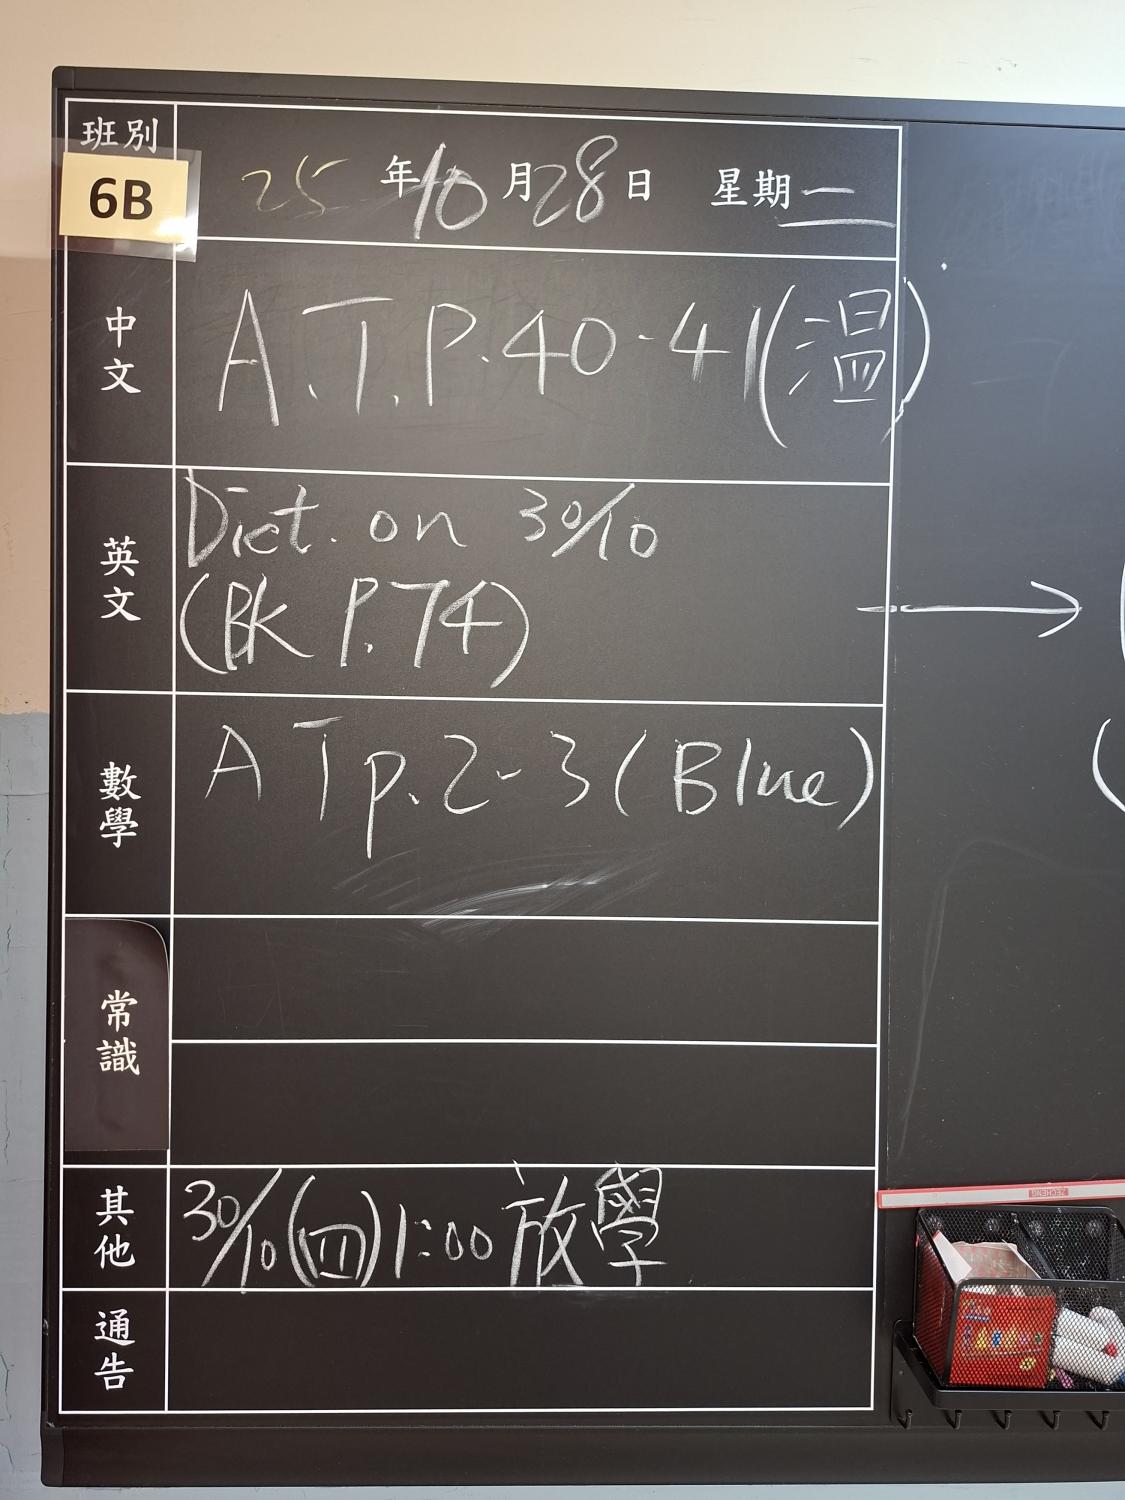 班別
6B
25年10月28日 星期二
中文
A.T.P.40-41(溫)
英文
Dict. on 30/10
(BK P.74)
數學
A T p.2-3(Blue)
常識
其他
30/10(四)1:00放學
通告
ZECHENG